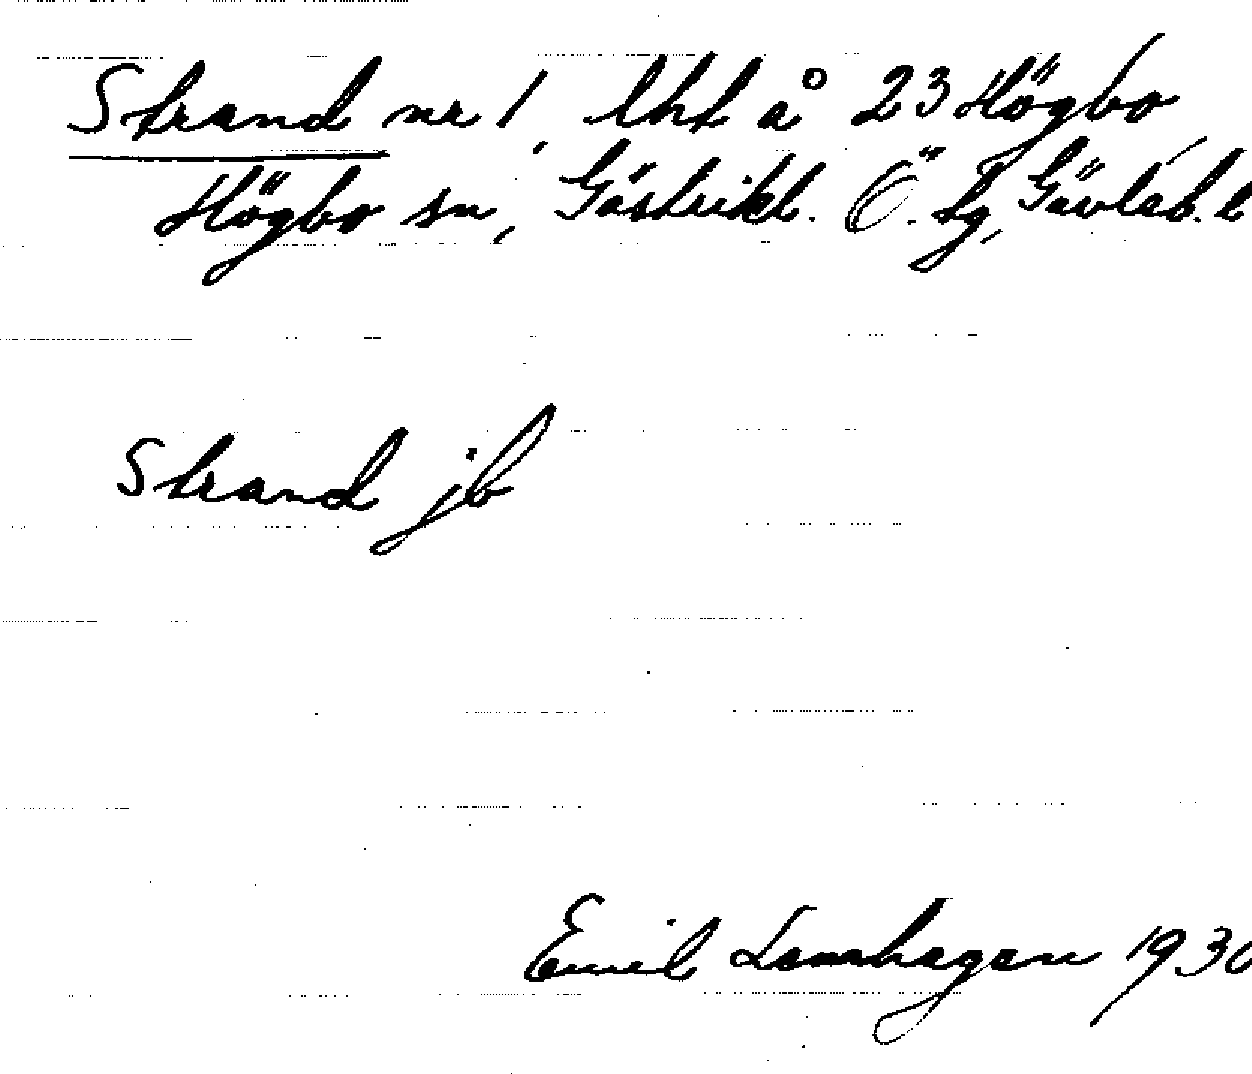 Strand nr 1, lht å 23 Högbo,
Högbo sn, Gästrikl. Ö. tg, Gävleb. l
Strand jb
Emil Lamhagen 1930